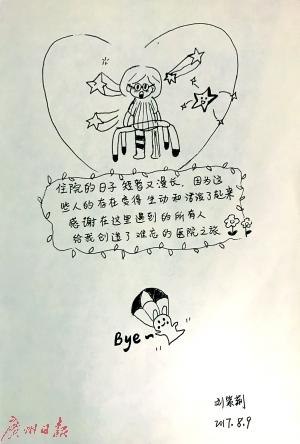 住院的日子短暂又漫长,因为这
些人的存在变得生动和活泼了起来
感谢在这里遇到的所有人
给我创造了难忘的医院之旅
Bye~
刘紫荆
2017.8.9
广州日报